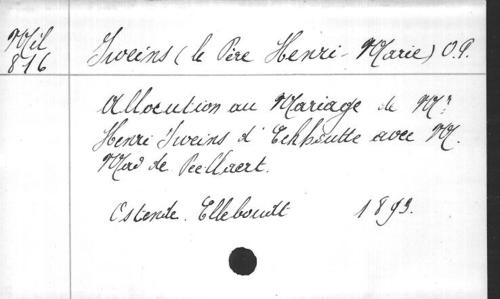 Mél
816
Iweins (le Père Henri-Marie) O.P.
Allocution au Mariage de Mr
Henri Iweins d'Eckhoutte avec M.
Mad de Peellaert.
Ostende. Elleboudt 1893.